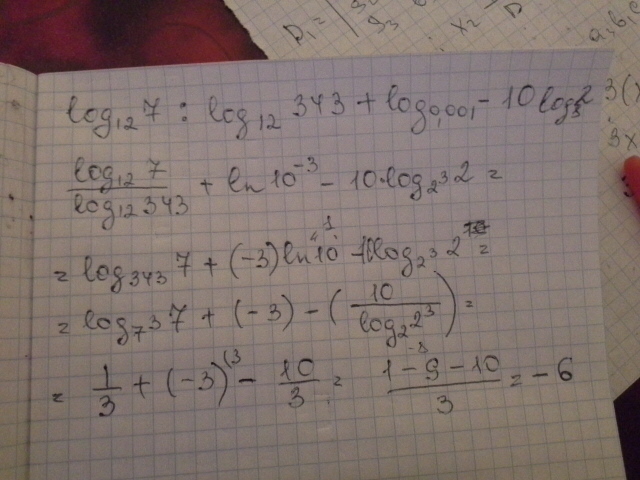 D₁ =
x₂ =
D
a, b, c
log₁₂ 7 : log₁₂ 343 + log 0,001 - 10 log₈ 2
3(
3x
log₁₂ 7 / log₁₂ 343 + ln 10⁻³ - 10 · log₂³ 2 =
= log₃₄₃ 7 + (-3) ln 10 - 10 log₂³ 2 =
= log₇³ 7 + (-3) - ( 10 / log₂ 2³ ) =
= 1/3 + (-3)⁽³ - 10/3 = (1 - 9 - 10)/3 = - 6